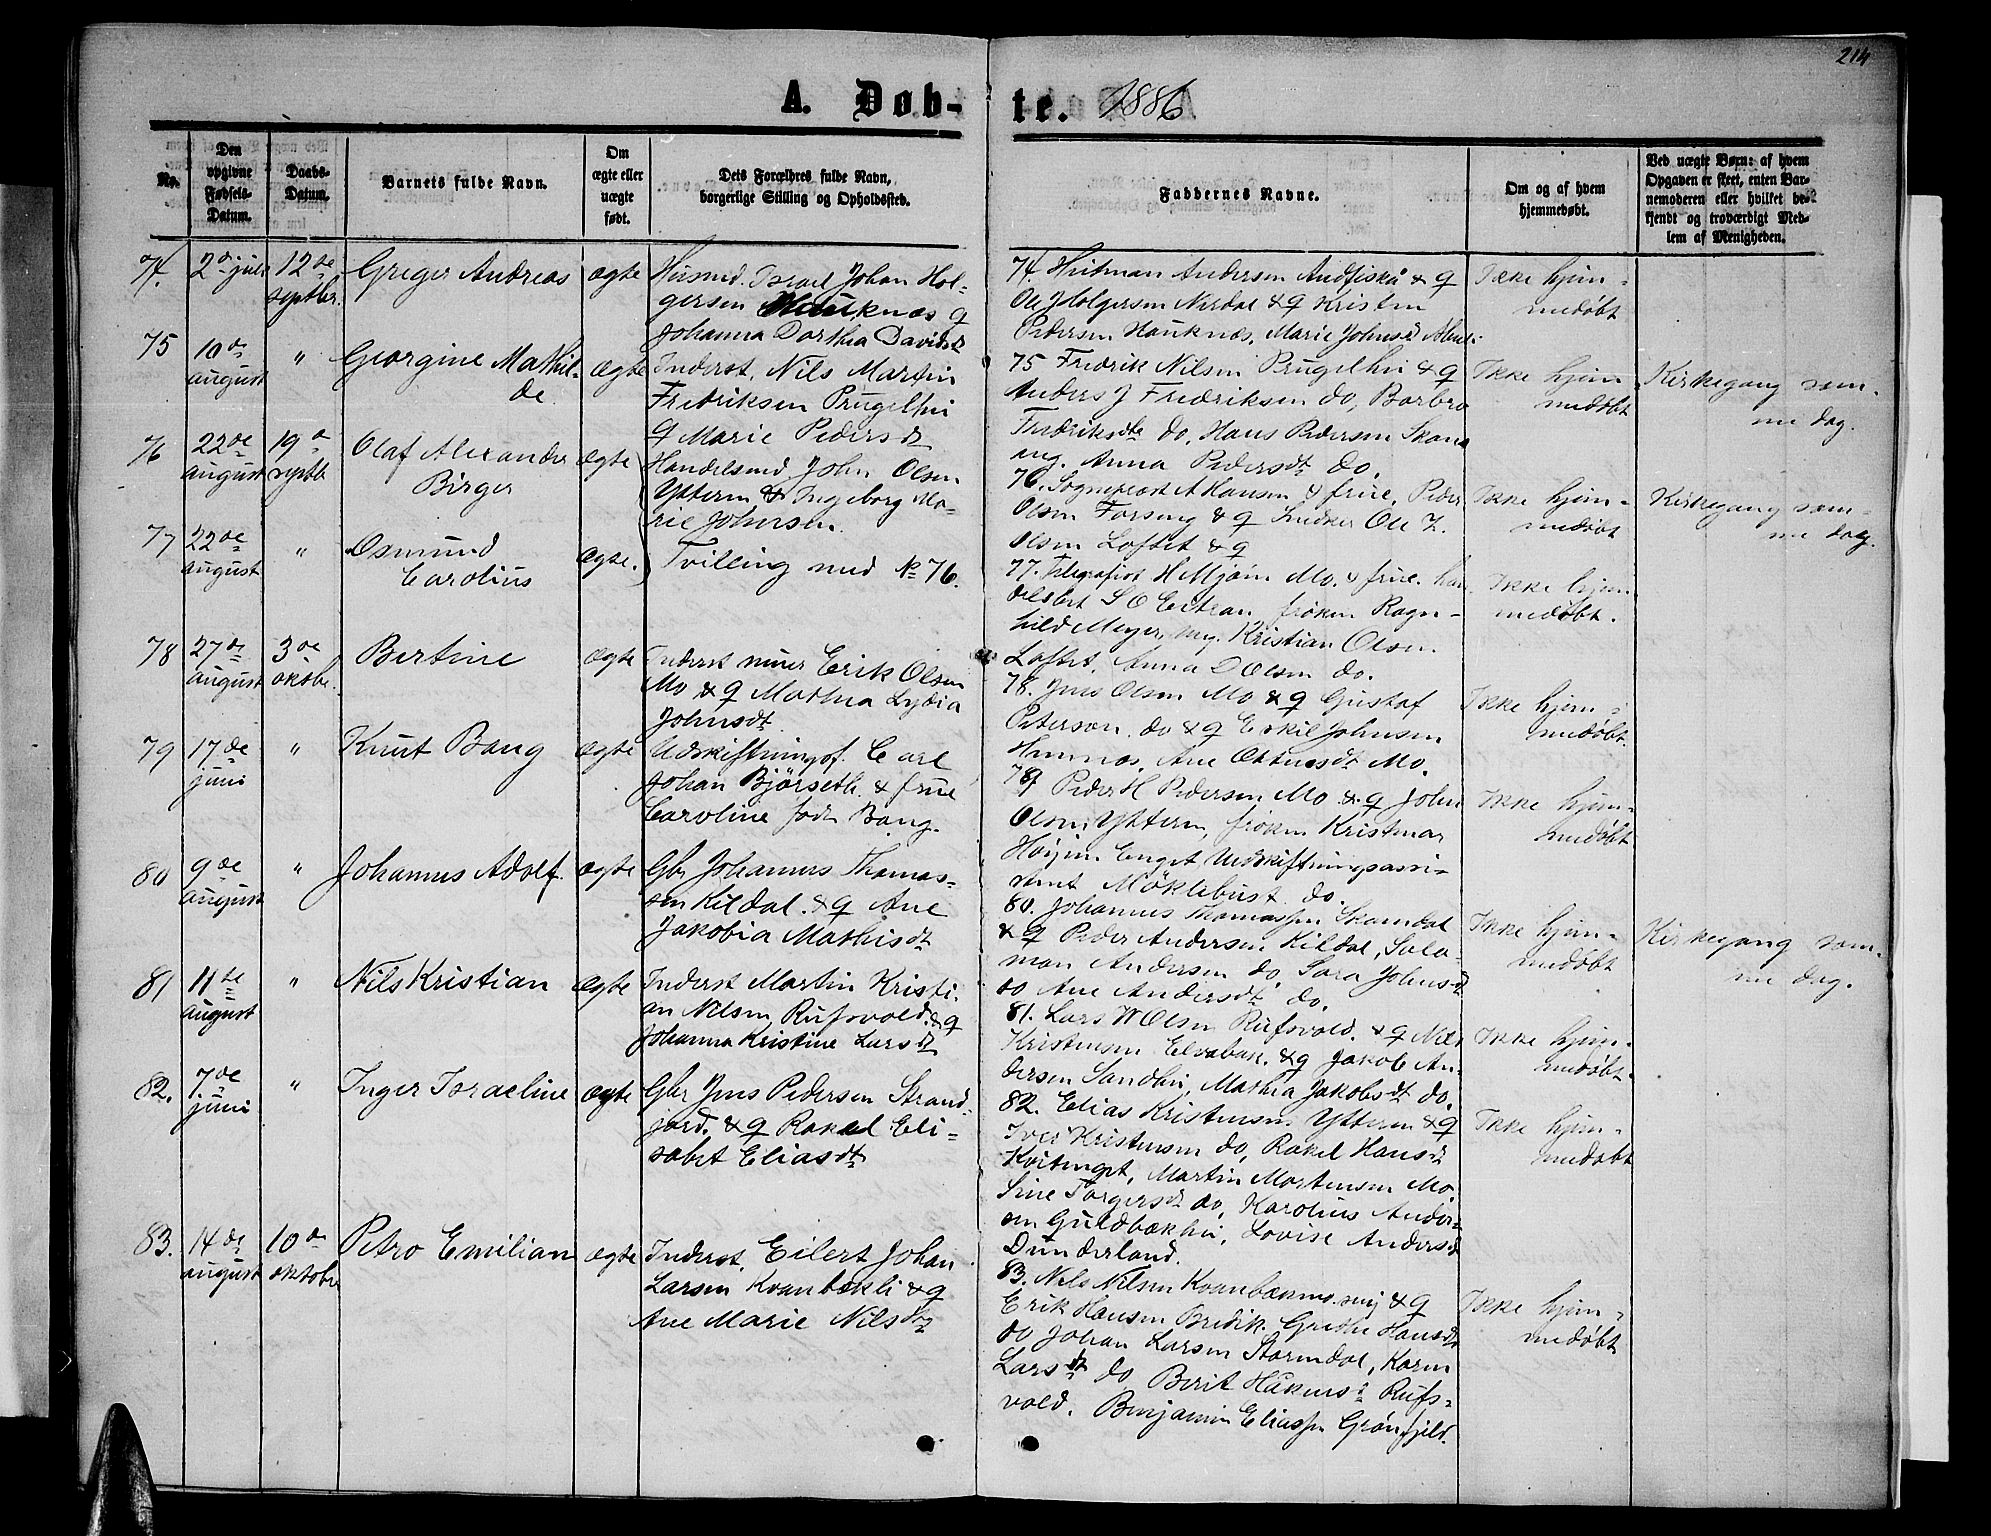 214
A. Døb-te. 1886
No.
Den opgivne Fødsels-Datum.
Daabs-Datum.
Barnets fulde Navn.
Om ægte eller uægte født.
Dets Forældres fulde Navn, borgerlige Stilling og Opholdssted.
Faddernes Navne.
Om og af hvem hjemmedøbt.
Ved uægte Børn: af hvem Opgaven er skeet, enten Barnemoderen eller hvilket bekjendt og troværdigt Medlem af Menigheden.
74. 2de juli 12te septbr. Greger Andreas ægte
Husmd. Israel Johan Hol-
gersen Hauknæs &
Johanna Dorthea Davidsdt
74. Andersen Andfiskå & q
Ole J Holgersen Nerdal & q Kristen
Pedersen Hauknæs, Marie Johnsdt
Ikke hjem-
medøbt
75 10de august " Georgine Mathil-
de ægte
Inderst. Nils Martin
Fredriksen Prugelhei
& Marie Pedersdt
75 Fredrik Nilsen Prugelhei & q
Anders J Fredriksen do, Barbro
Fredriksdtr do, Hans Pedersen Skans
ug. Anna Pedersdt do.
Ikke hjem
medøbt
Kirkegang sam-
me dag.
76 22de august 19de septb Olaf Alexander
Birger ægte
Handelsmd John Olsen
Ytteren & Ingeborg Ma-
rie Johnsen.
76. Sogneprest A Hansen & frue, Peder
Olsen Forseng & q Snedker Ole Z.
Olsen Loftet & q
Ikke hjem-
medøbt
Kirkegang sam-
me dag.
77 22de august " Osmund
Carolius ægte.
Tvilling med No 76.
77. Telegrafist H Mjøen Mo. & frue. han-
delsbst S O frøken Ragn-
hild Meyer, ung. Kristian Olsen
Loftet, Anna D Olsen do.
Ikke hjem
medøbt.
78 27de august 3de oktbr. Bertine ægte
Inderst murer Erik Olsen
Mo & q Marthea Lydia
Johnsdt
78. Jens Olsen Mo & q Gustaf
Peterson do & q Eskil Johnsen
Hemnæs, Ane Ottersdt Mo.
Ikke hjem-
medøbt.
79 17de juni " Knut Bang ægte
Udskiftningsf. Carl
Johan Bjørseth & frue
Caroline født Bang.
79 Peder H Pedersen Mo & q John
Olsen Ytteren, frøken
Høijen Enget Udskiftningsassi-
stent Møklebust do.
Ikke hjem-
medøbt
80 9de august " Johannes Adolf. ægte
Gbr Johannes Thomas-
sen Kildal. & q Ane
Jakobia Mathisdt
80. Johannes Thomassen Skamdal
& q Peder Andersen Kildal, Salo-
mon Andersen do, Sara Johnsdt
do Ane Andersdt do.
Ikke hjem-
medøbt
Kirkegang sam-
me dag.
81 11te august " Nils Kristian ægte
Inderst Martin Kristi-
an Nilsen Rufsvold. & q
Johanna Kristine Larsdt
81. Lars W Olsen Rufsvold. & q
Kristensen Elvebak. & q Jakob An-
dersen Sandhei, Mathea Jakobsdt do.
Ikke hjem-
medøbt.
82. 7de juni " Inger Israeline ægte
Gbr Jens Pedersen Strand-
jord. & q Rakel Eli-
sabet Eliasdt
82. Elias Kristensen Ytteren & q
Iver Kristensen do, Rakel Hansdt
Kvitenget, Martin Mortensen Mo.
Sine Torgersdt do, Karolius Ander-
sen Guldbækhei, Lovise Andersdt
Dunderland.
Ikke hjem-
medøbt
83. 14de august 10de oktober Petro Emilian ægte
Inderst. Eilert Johan
Larsen Kvanbækli & q
Ane Marie Nilsdt
83. Nels Nilsen Kvanbækmo & q
Erik Hansen Bredik. Grethe Hansdt
do Johan Larsen Stormdal, Karen
Larsdt do Berit Håkens Rufs-
vold. Benjamin Eliassen Grønfjeld.
Ikke hjem-
medøbt